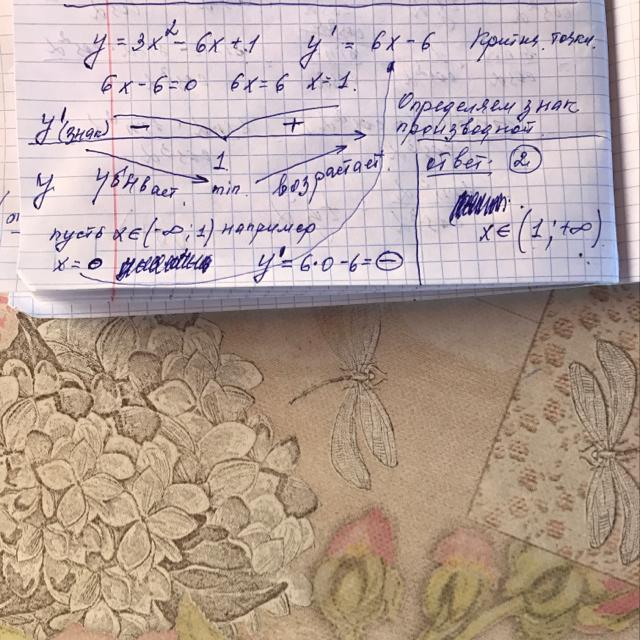 y = 3x² - 6x + 1    y' = 6x - 6    Критич. точки.
6x - 6 = 0   6x = 6   x = 1.
Определяем знак
производной
y' (знак)   −   +
1
y   убывает   min.   возрастает.
ответ: 2
пусть x ∈ (-∞; 1) например
x ∈ (1; +∞)
x = 0   y' = 6·0 - 6 = −